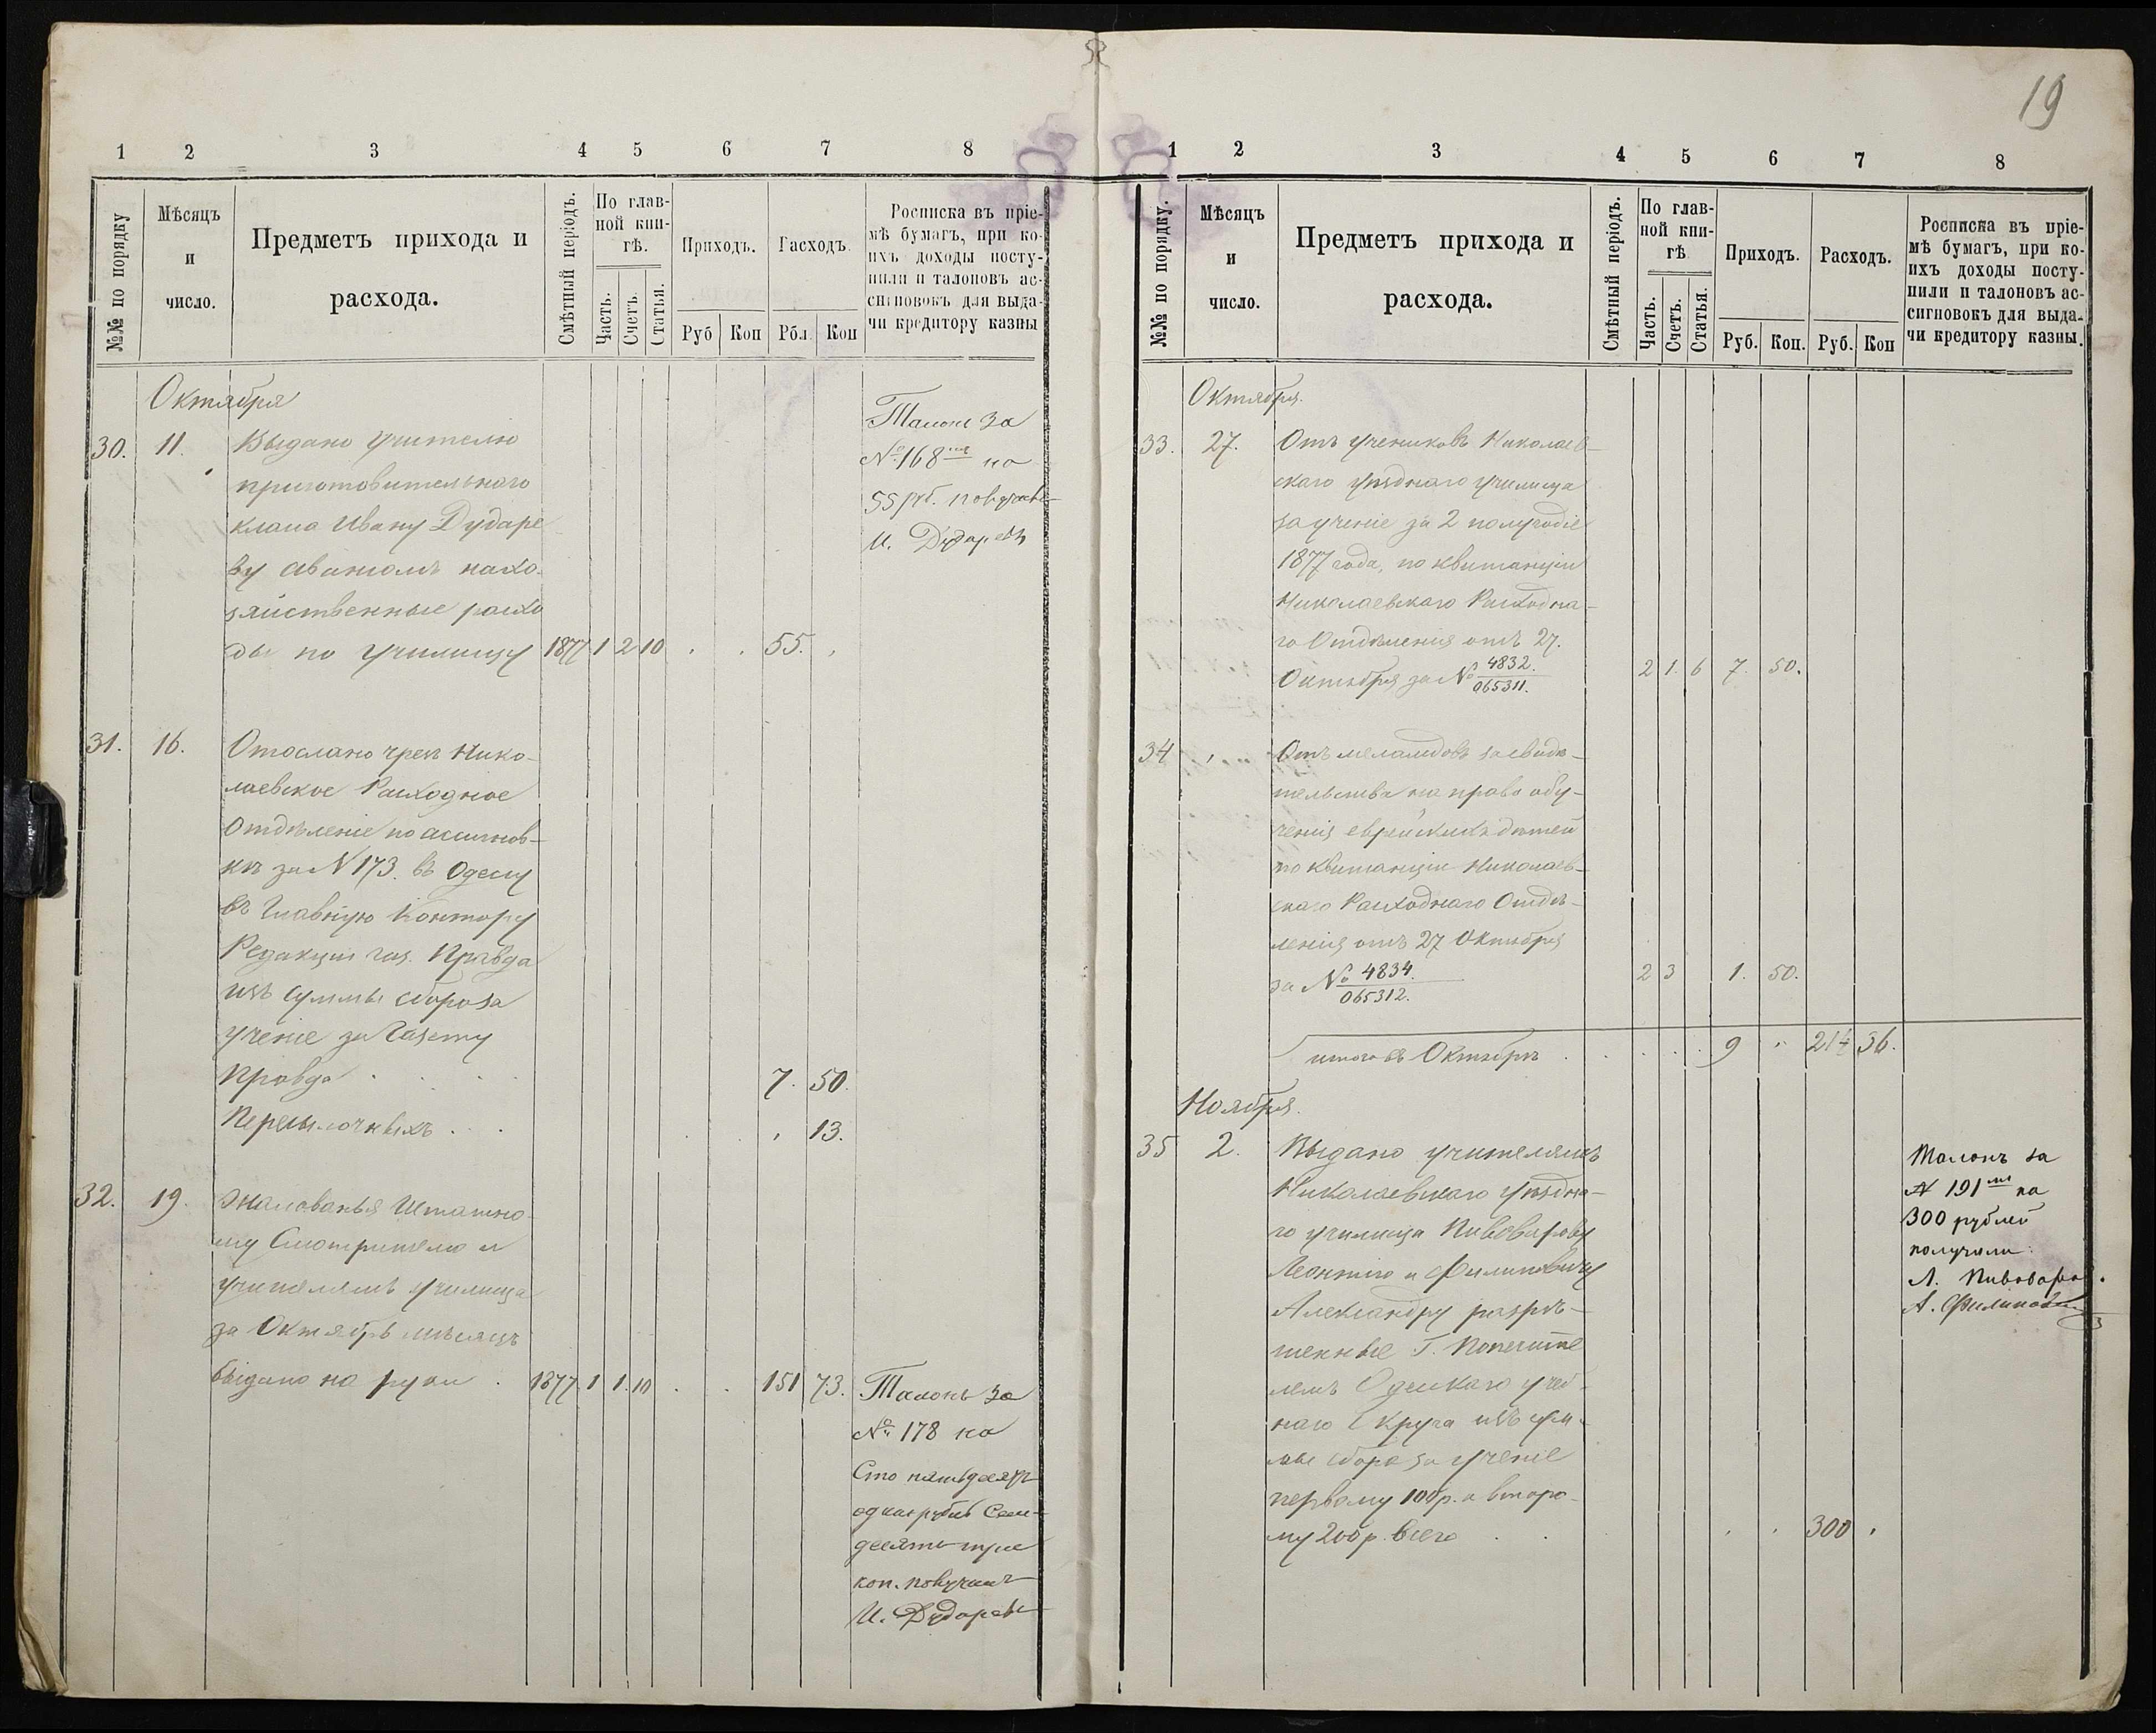 19
1 2 3 4 5 6 7 8
№№ по порядку
Мѣсяцъ
и
число.
Предметъ прихода и
расхода.
Смѣтный періодъ.
По глав-
ной кни-
гѣ.
Часть.
Счетъ.
Статья.
Приходъ.
Руб Коп
Расходъ.
Рбл Коп
Росписка въ пріе-
мѣ бумагъ, при ко-
ихъ доходы посту-
пили и талоновъ ас-
сигновокъ для выда-
чи кредитору казны
Октября
30. 11. Выдано учителю
приготовительнаго
класа Ивану Дударе
ву авансомъ на хо-
зяйственные расхо
ды по училищу 1877 1 2 10 . . 55. .
Талонъ за
№ 168 на
55 руб. получилъ
И. Дударевъ
31. 16. Отослано чрезъ Нико-
лаевское Расходное
Отдѣленіе по ассигнов-
кѣ за № 173. въ Одессу
въ Главную Контору
Редакціи газ. Правда
изъ суммы сбора за
ученіе за Газету
Правда . . . 7. 50.
Пересылочныхъ . . . 13.
32. 19. Жалованья Штатно-
му Смотрителю и
учителямъ училища
за Октябрь мѣсяцъ
выдано на руки . 1877 1 1. 10 . . 151 73.
Талонъ за
№ 178 на
Сто пятьдесятъ
одинъ рубль Сем-
десятъ три
коп. получилъ
И. Дударевъ
1 2 3 4 5 6 7 8
№№ по порядку.
Мѣсяцъ
и
число.
Предметъ прихода и
расхода.
Смѣтный періодъ.
По глав-
ной кни-
гѣ
Часть.
Счетъ.
Статья.
Приходъ.
Руб. Коп.
Расходъ.
Руб. Коп
Росписка въ пріе-
мѣ бумагъ, при ко-
ихъ доходы посту-
пили и талоновъ ас-
сигновокъ для выда-
чи кредитору казны.
Октября.
33. 27. Отъ учениковъ Николаев-
скаго уѣзднаго училища
за ученіе за 2 полугодіе
1877 года, по квитанціи
Николаевскаго Расходна-
го Отдѣленія отъ 27.
Октября за № 4832. 2 1. 6 7. 50.
065311.
34 , Отъ меламдовъ за свидѣ-
тельства на право обу-
ченія еврейскихъ дѣтей
по квитанціи Николаев-
скаго Расходнаго Отдѣ-
ленія отъ 27 Октября
за № 4834. 2 3 1. 50.
065312.
итого въ Октябрѣ . . . . . 9 . 214 36.
Ноября.
35 2. Выдано учителямъ
Николаевскаго уѣздна-
го училища Пивоварову
Леонтію и Филиповичу
Александру разрѣ-
шенные Г. Попечите
лемъ Одесскаго учеб-
наго Округа изъ сум-
мы сбора за ученіе
первому 100 р. а второ-
му 200 р. всего . . . . 300 .
Талонъ за
№ 191 на
300 рублей
получили:
Л. Пивоваровъ.
А. Филиповичъ